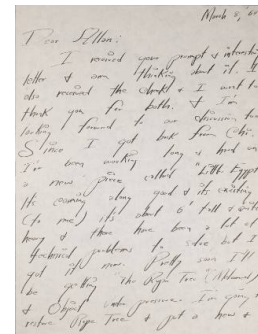 March 2, 6
Dear Ellen:
I received your prompt & interesting
letter & am thinking about it. I
also received the check & I want to
thank you for both. & I'm
looking forward to our discussion
Since I got back from Chi.
I've been working long & hard on
a new piece called "Little Egypt
Its coming along good & its exciting
(to me) its about 6' tall &
heavy & there have been a lot of
technical problems to solve but I
got it now. Pretty soon I'll
be getting "The Rope Tree (Mohamed)
& Object under pressure. I'm going
restore Rope Tree & put a new